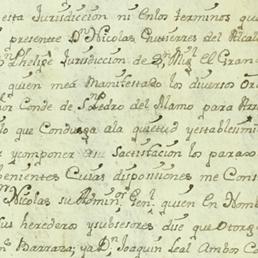 esta Jurisdiccion ni enlos terminos que
presente Dn Nicolas Gutierres del
Sn Phelipe Jurisdiccion de Sn Migl El Gran
quien meá Manifestado los diversos
Conde de Sn Pedro del Alamo para
lo que Condusga ala quietud yestablesimi
ycomponer asu Sactisfacion los
benientes Cuias dispociones me Cons
Nicolas su Adminor Genl quien en Nomb
sus herederos ysubsesores dijo que Otorg
Barraza; ya Dn Joaquin Leal Ambos